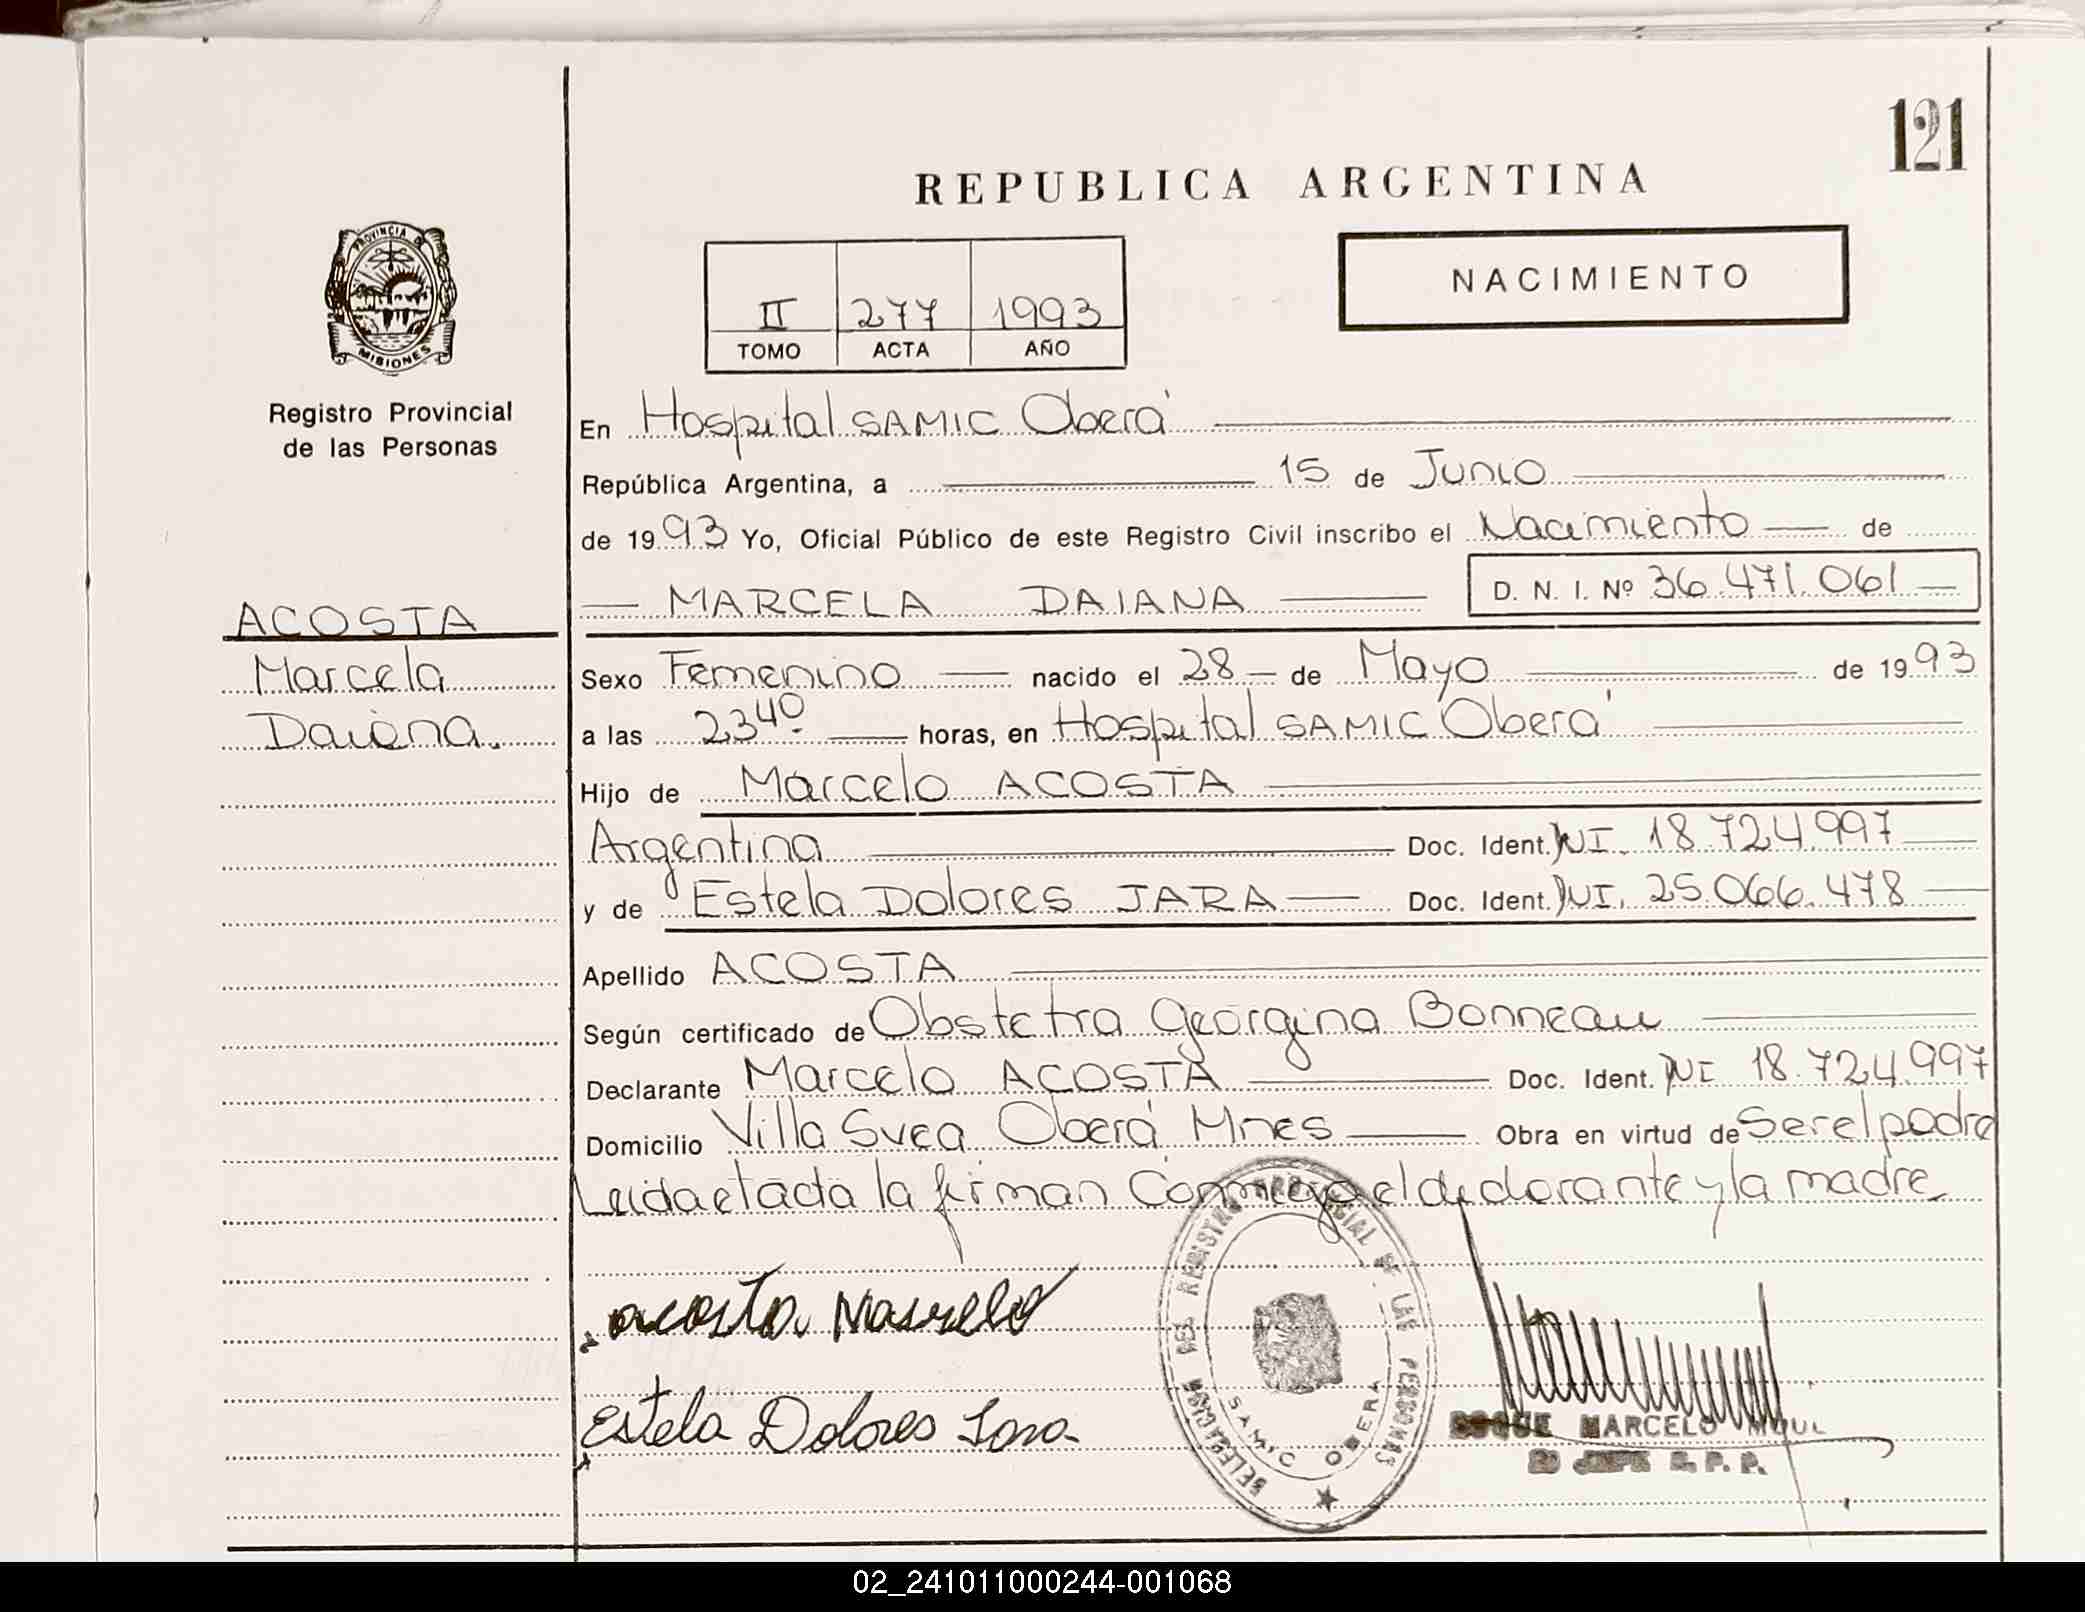 121
REPUBLICA ARGENTINA
PROVINCIA DE
MISIONES
Registro Provincial
de las Personas
NACIMIENTO
II 277 1993
TOMO ACTA AÑO
En Hospital SAMIC Oberá
República Argentina, a 15 de Junio
de 1993 Yo, Oficial Público de este Registro Civil inscribo el Nacimiento de
MARCELA DAIANA D. N. I. Nº 36.471.061
ACOSTA
Marcela
Daiana.
Sexo Femenino nacido el 28 de Mayo de 1993
a las 23⁴⁰ horas, en Hospital SAMIC Oberá
Hijo de Marcelo ACOSTA
Argentina Doc. Ident. DNI. 18.724.997
y de Estela Dolores JARA Doc. Ident. DNI. 25.066.478
Apellido ACOSTA
Según certificado de Obstetra Georgina Bonneau
Declarante Marcelo ACOSTA Doc. Ident. DNI 18.724.997
Domicilio Villa Svea Oberá Mnes Obra en virtud de Ser el padre
Leida el acta la firman Conmigo el declarante y la madre
acosta Marcelo
Estela Dolores Jara
DELEGACION DEL REGISTRO PROVINCIAL DE LAS PERSONAS
SAMIC OBERA
ROQUE MARCELO
JEFE R. P. P.
02_241011000244-001068